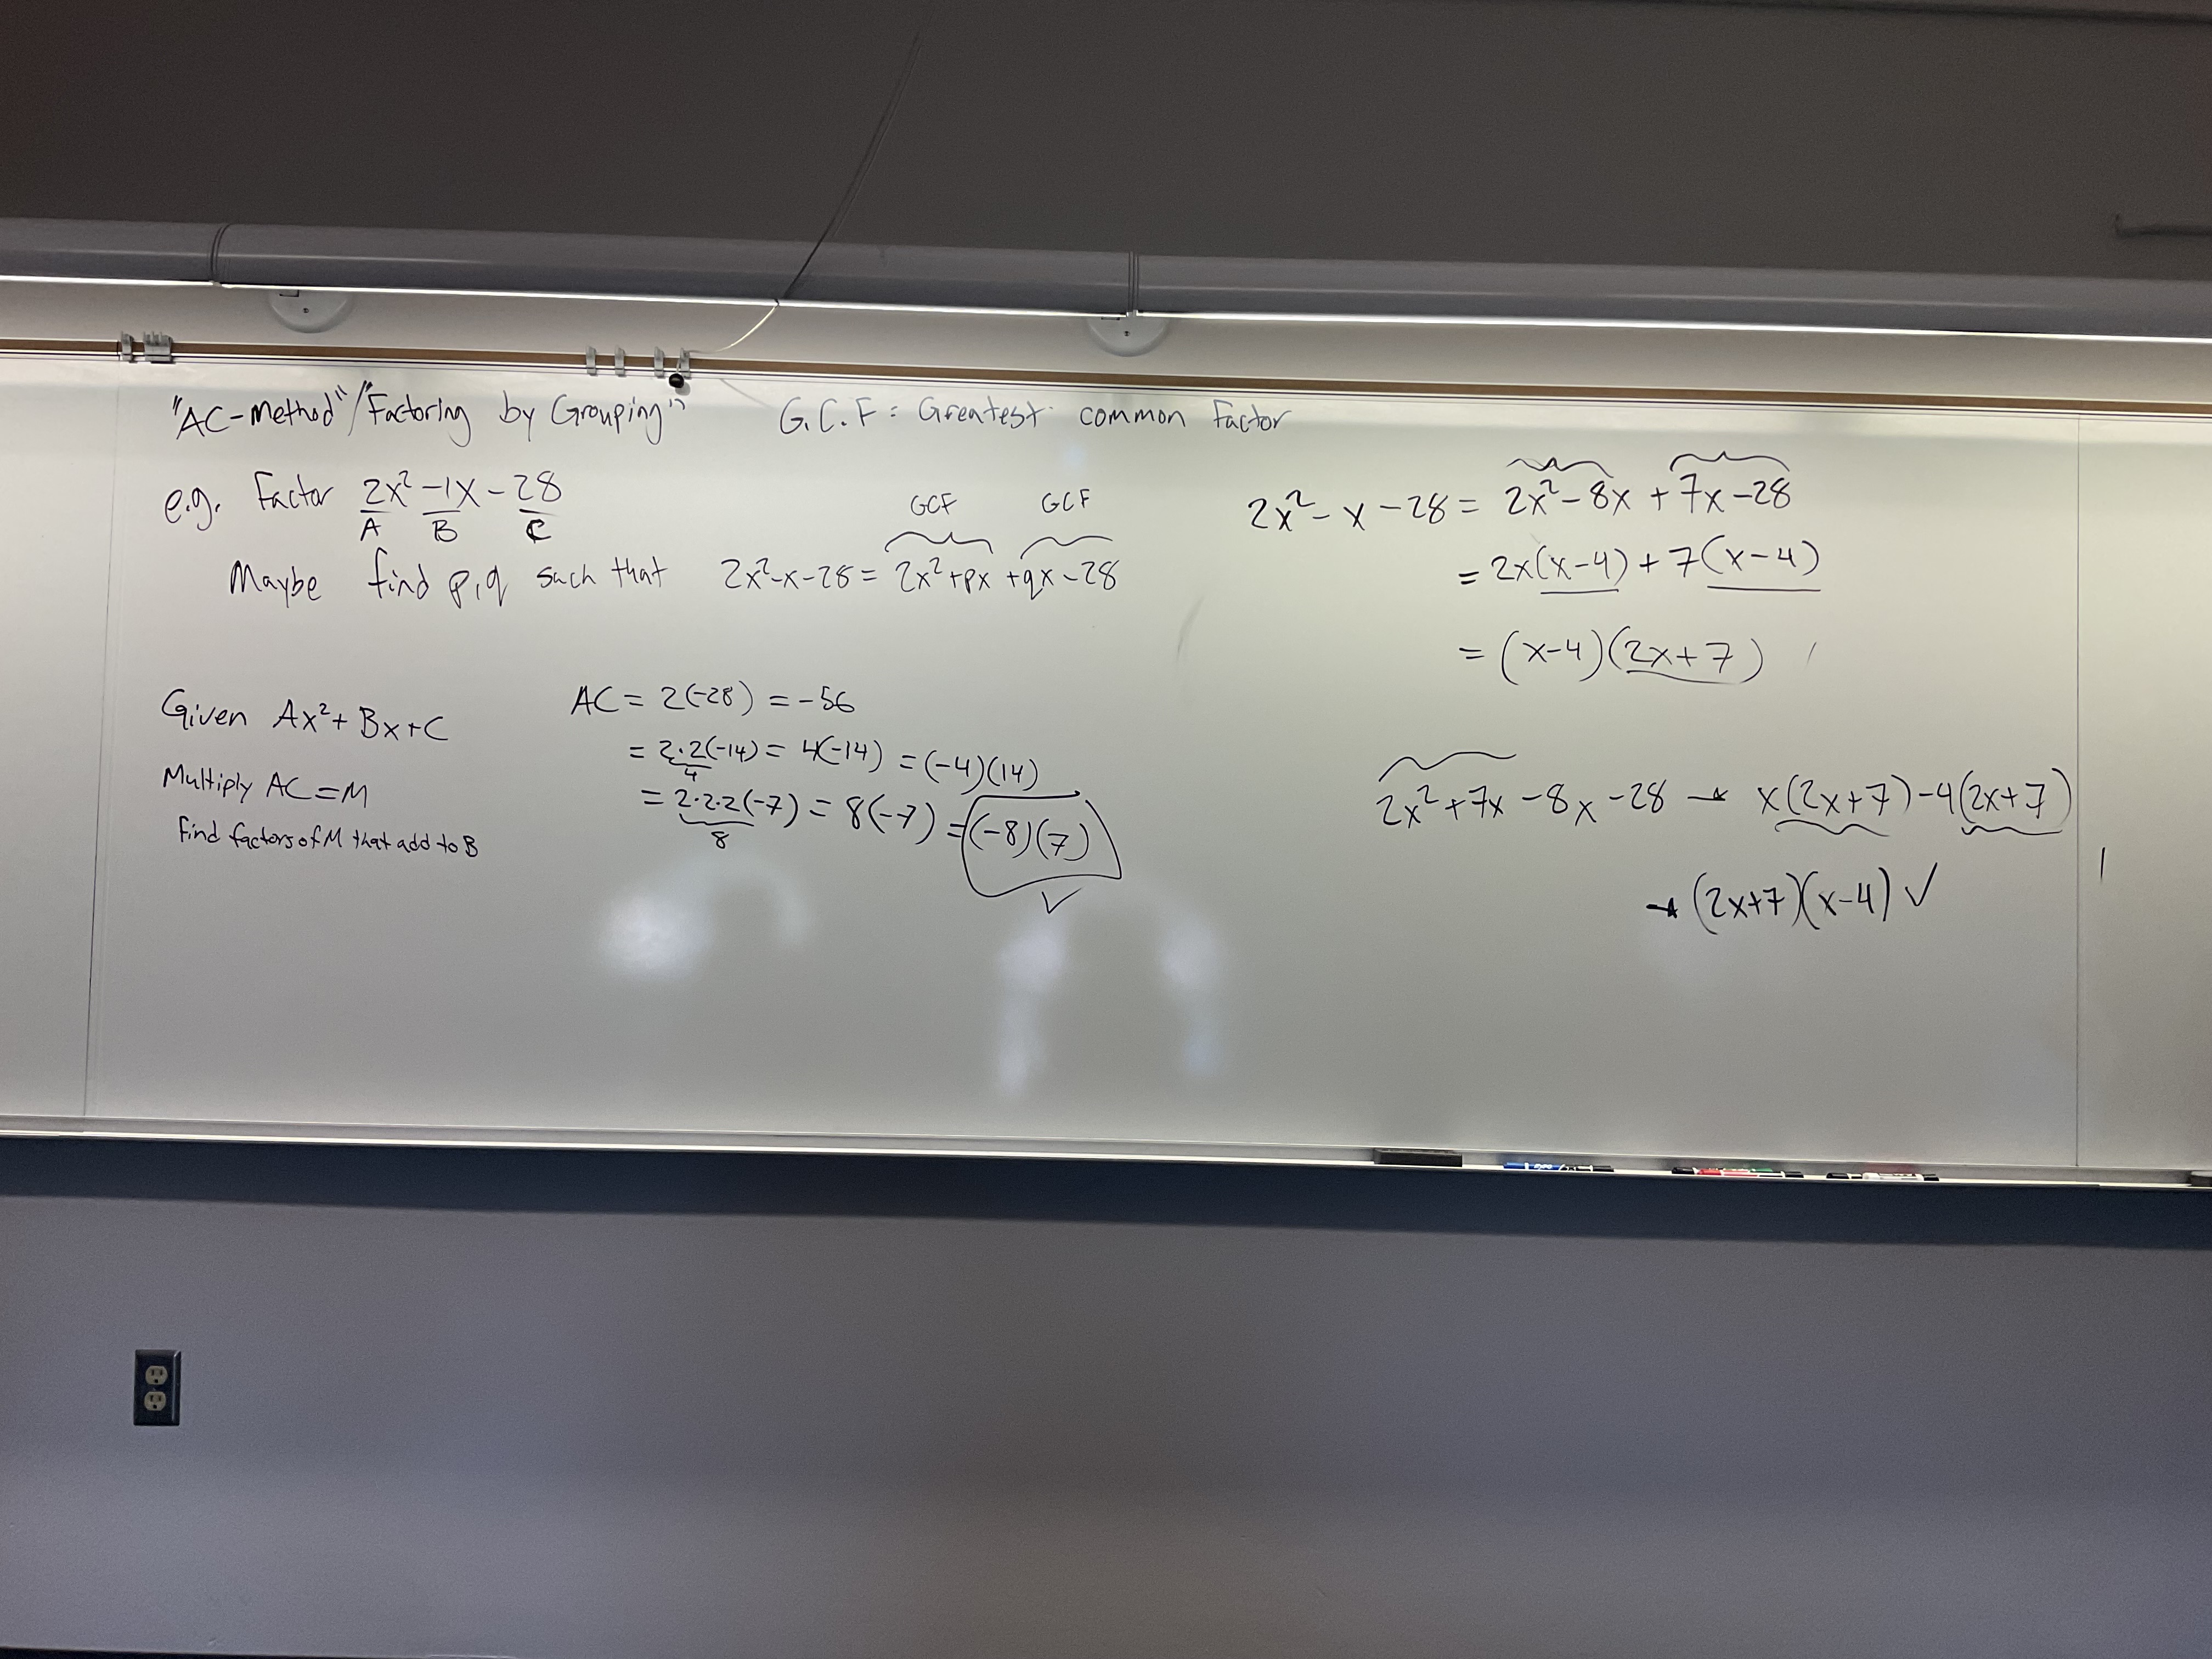 "AC-Method"/"Factoring by Grouping" G.C.F = Greatest common factor
e.g. Factor 2x² - 1x - 28
A B C
GCF GCF
Maybe find p,q such that 2x²-x-28 = 2x²+px +qx-28
Given Ax² + Bx + C
Multiply AC = M
Find factors of M that add to B
AC = 2(-28) = -56
= 2·2(-14) = 4(-14) = (-4)(14)
4
= 2·2·2(-7) = 8(-7) = (-8)(7)
8
✓
2x² - x - 28 = 2x² - 8x + 7x - 28
= 2x(x-4) + 7(x-4)
= (x-4)(2x+7)
2x² + 7x - 8x - 28 → x(2x+7) - 4(2x+7)
→ (2x+7)(x-4) ✓